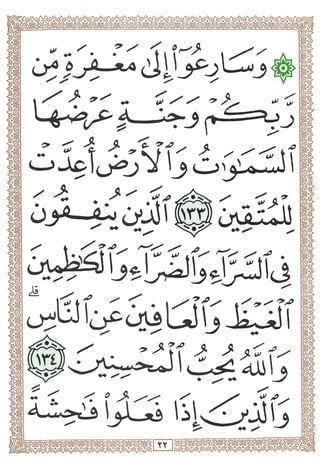 وَسَارِعُوٓا۟ إِلَىٰ مَغْفِرَةٍ مِّن
رَّبِّكُمْ وَجَنَّةٍ عَرْضُهَا
ٱلسَّمَٰوَٰتُ وَٱلْأَرْضُ أُعِدَّتْ
لِلْمُتَّقِينَ ١٣٣ ٱلَّذِينَ يُنفِقُونَ
فِى ٱلسَّرَّآءِ وَٱلضَّرَّآءِ وَٱلْكَٰظِمِينَ
ٱلْغَيْظَ وَٱلْعَافِينَ عَنِ ٱلنَّاسِ ۗ
وَٱللَّهُ يُحِبُّ ٱلْمُحْسِنِينَ ١٣٤
وَٱلَّذِينَ إِذَا فَعَلُوا۟ فَٰحِشَةً
٢٢